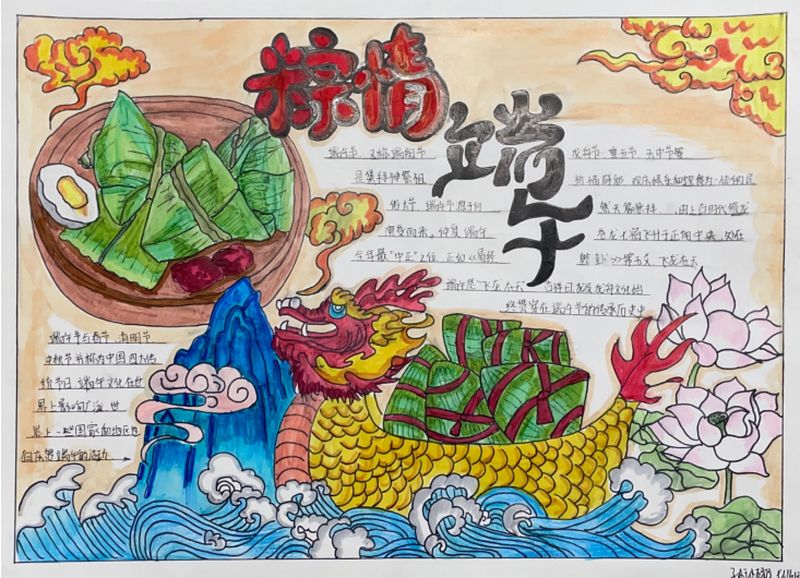 粽情
端午
端午节，又称端阳节
龙舟节、重五节、天中节等
是集拜神祭祖
祈福辟邪、欢庆娱乐和饮食为一体的民
俗大节，端午节源于自
然天象崇拜，由上古时代祭龙
演变而来，仲夏端午
苍龙七宿飞升于正南中央，处在
全年最"中正"之位，正如《易经
乾卦》第五爻：飞龙在天
端午是"飞龙在天"吉祥日，龙及龙舟文化始
终贯穿在端午节的传承历史中
端午节与春节、清明节
中秋节并称为中国四大传
统节日，端午文化在世
界上影响广泛，世
界上一些国家和地区也
有庆贺端午的活动